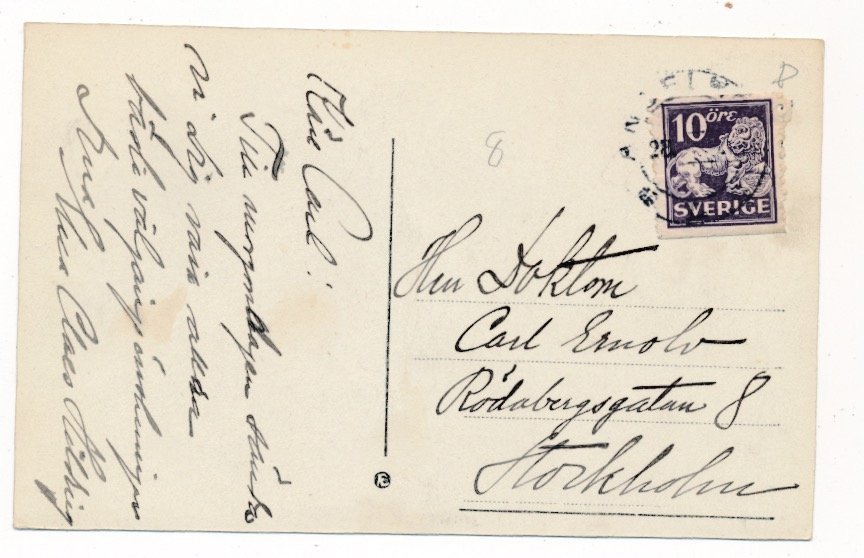 Käre Carl!
Till morgondagen sända
vi Dig våra allra
bästa välgångsönskningar
Claes
8
10 ÖRE
SVERIGE
28
Herr Doktorn
Carl Ernolv
Rödabergsgatan 8
Stockholm